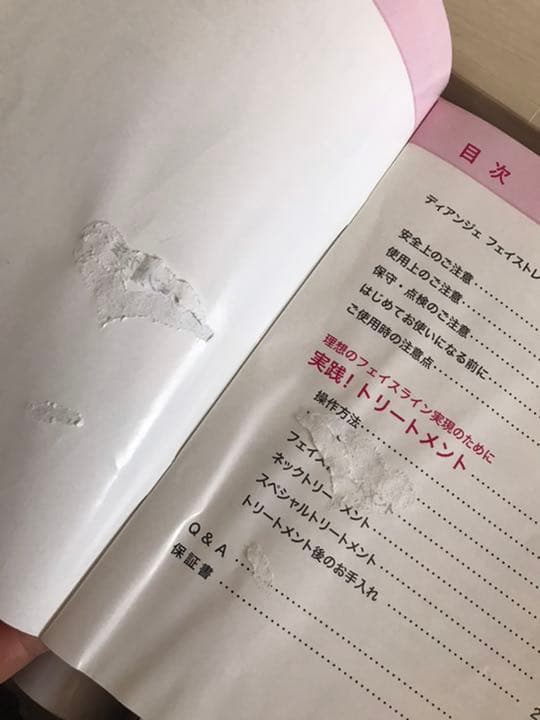 目次
ディアンジェ フェイストレ
安全上のご注意
使用上のご注意
保守・点検のご注意
はじめてお使いになる前に
ご使用時の注意点
理想のフェイスライン実現のために
実践!トリートメント
操作方法
フェイス
ネックトリートメント
スペシャルトリートメント
トリートメント後のお手入れ
Q & A
保証書
2